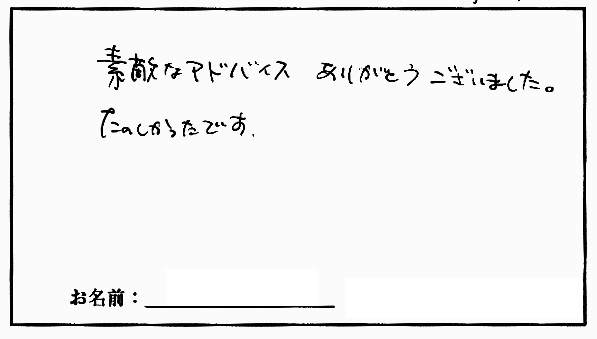 素敵なアドバイス ありがとうございました。
たのしかったです.
お名前: